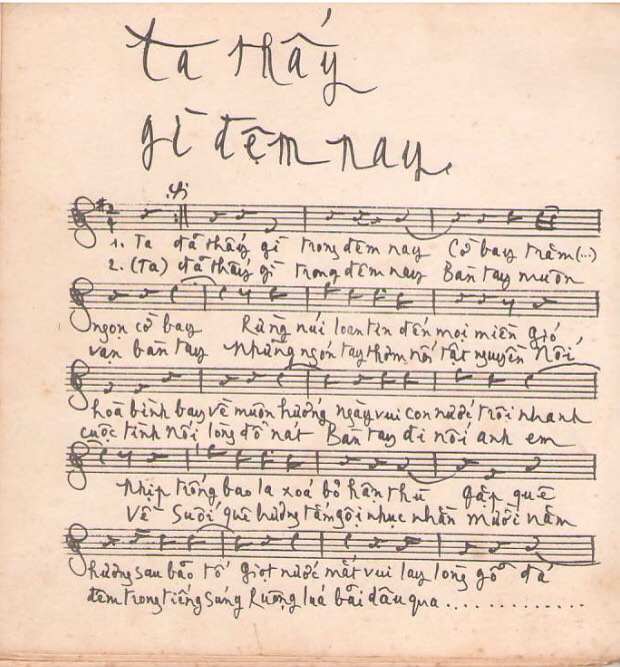 Ta thấy
gì đêm nay
1. Ta đã thấy gì trong đêm nay Cờ bay trăm (...)
2. (Ta) đã thấy gì trong đêm nay Bàn tay muôn
ngọn cờ bay Rừng núi loan tin đến mọi miền gió
vạn bàn tay Những ngón tay thơm nối tật nguyền Nối
hoà bình bay về muôn hướng ngày vui con nước trôi nhanh
cuộc tình nối lòng đổ nát Bàn tay đi nối anh em
Nhịp trống bao la xoá bỏ hận thù Gặp quê
Về suối quê hương tắm gội nhục nhằn mười năm
hương sau bão tố giọt nước mắt vui lay lòng gỗ đá
đêm trong tiếng súng Ruộng lúa bãi dâu qua .............